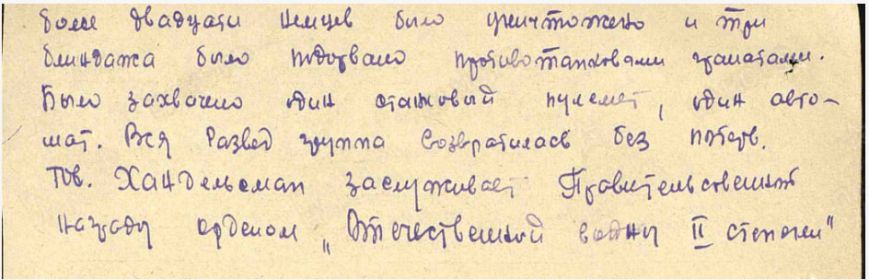 более двадцати немцев было уничтожено и три
блиндажа было подорвано противотанковами гранатами.
Было захвачено один станковый пулемет, один авто-
мат. Вся развед группа возвратилась без потерь.
Тов. Хандельсман заслуживает Правительственной
награду орденом „Отечественной войны II степени"